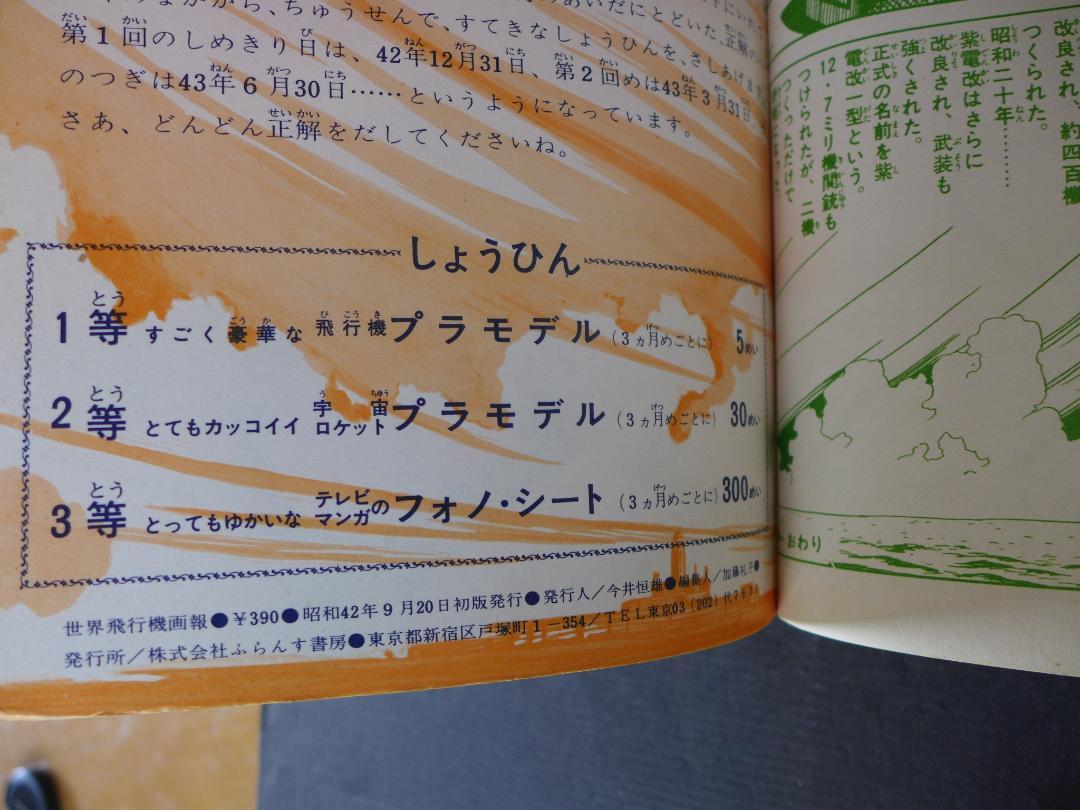 ちゅうせんで、すてきなしょうひんを、さしあげます
第1回のしめきり日は、42年12月31日、第2回めは43年3月31日、
のつぎは43年6月30日……というようになっています。
さあ、どんどん正解をだしてくださいね。
しょうひん
1等 すごく豪華な 飛行機プラモデル (3ヵ月めごとに) 5めい
2等 とてもカッコイイ 宇宙ロケットプラモデル (3ヵ月めごとに) 30めい
3等 とってもゆかいな テレビマンガのフォノ・シート (3ヵ月めごとに) 300めい
世界飛行機画報●¥390●昭和42年9月20日初版発行●発行人/今井恒雄●編集人/加藤礼子●
発行所/株式会社ふらんす書房●東京都新宿区戸塚町1-354/TEL東京03(202)代763
改良され、約四百機
つくられた。
昭和二十年……
紫電改はさらに
改良され、武装も
強くされた。
正式の名前を紫
電改一型という。
12・7ミリ機関銃も
つけられたが、二機
つくっただけで
おわり